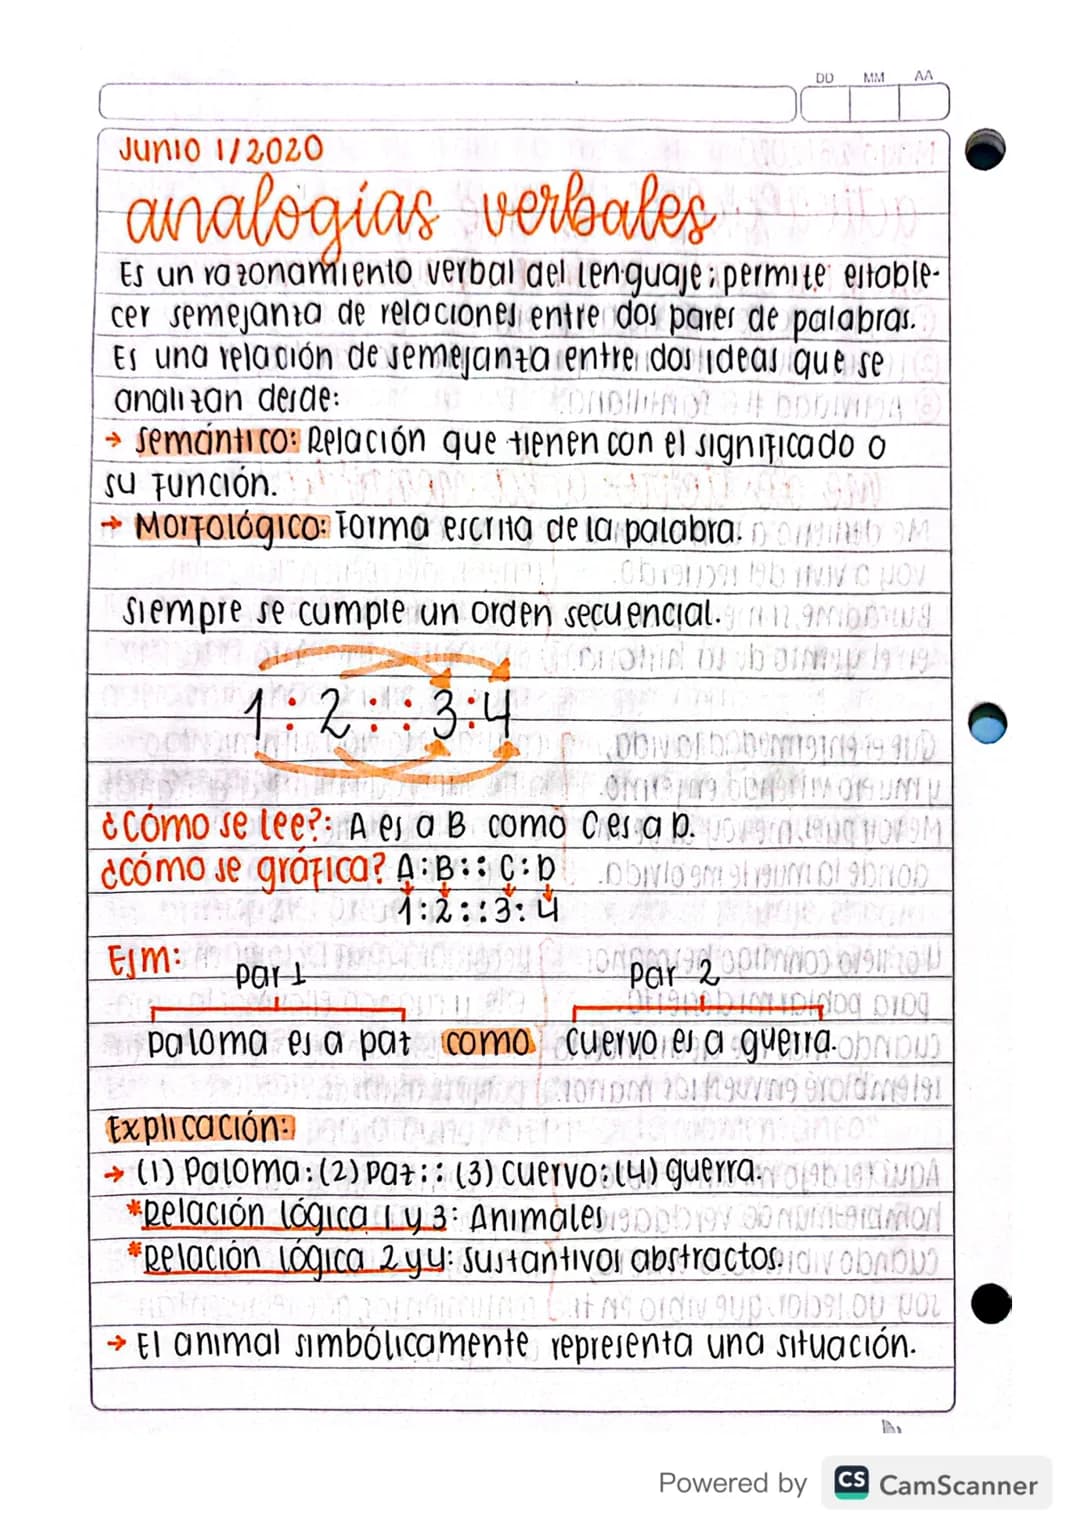 DD MM AA
Junio 1/2020
analogías verbales
Es un razonamiento verbal del lenguaje; permite estable-
cer semejanza de relaciones entre dos pares de palabras.
Es una relación de semejanza entre dos ideas que se
analizan desde:
→ Semántico: Relación que tienen con el significado o
su función.
→ Morfológico: Forma escrita de la palabra.
Siempre se cumple un orden secuencial.
1 : 2 : : 3 : 4
¿Cómo se lee?: A es a B como C es a D.
¿cómo se gráfica? A : B : : C : D
1 : 2 : : 3 : 4
Ejm:
par 1 Par 2
paloma es a paz como cuervo es a guerra.
Explicación:
→ (1) Paloma : (2) Paz : : (3) cuervo : (4) guerra.
*Relación lógica 1 y 3: Animales
*Relación lógica 2 y 4: sustantivos abstractos.
→ El animal simbólicamente representa una situación.
Powered by CS CamScanner